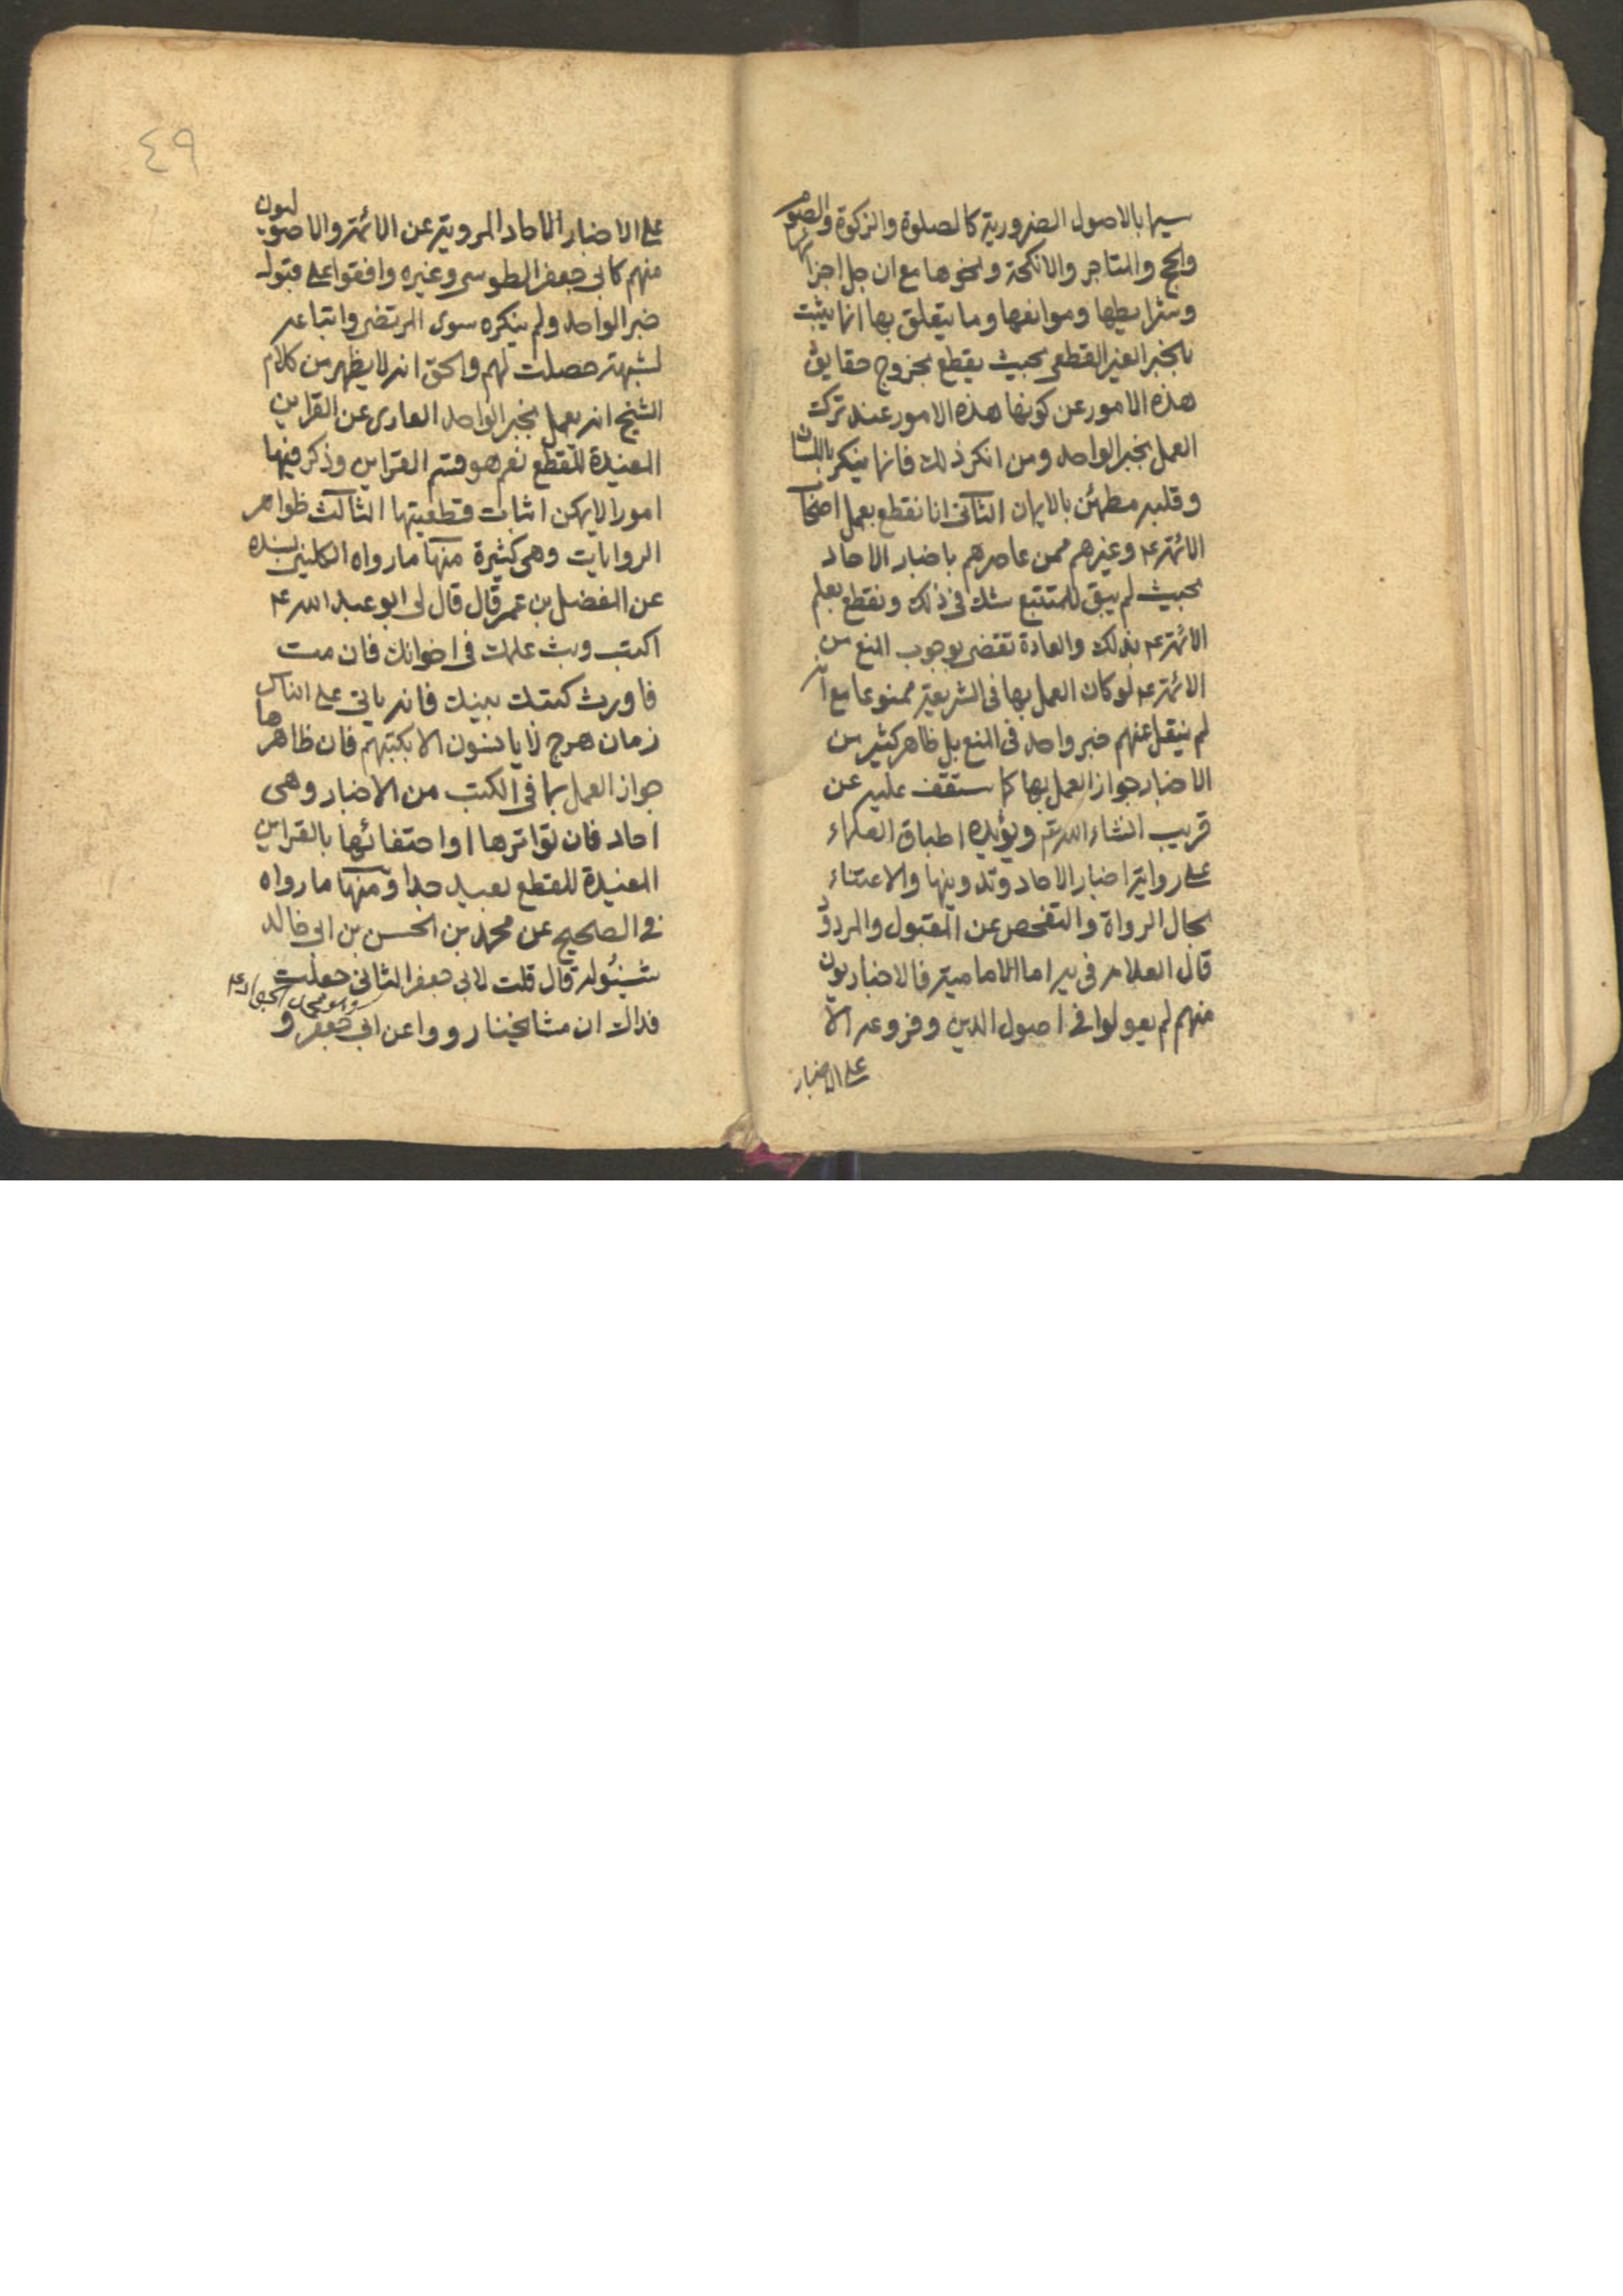 سيما بالاصول الضرورية كالصلوة والزكوة والصوم
والحج والمتاجر والانكحة ونحوها مع ان جل اجزائها
وشرايطها وموانعها وما يتعلق بها انما يثبت
بالخبر الغير القطعى بحيث يقطع بخروج حقايق
هذه الامور عن كونها هذه الامور عند ترك
العمل بخبر الواحد ومن انكر ذلك فانما ينكر باللسان
وقلبه مطمئن بالايمان الثانى انا نقطع بعمل اصحاب
الائمة ع وغيرهم ممن عاصرهم باخبار الاحاد
بحيث لم يبق للمتتبع شك فى ذلك ونقطع بعلم
الائمة ع بذلك والعادة تقضى بوجوب المنع من
الائمة ع لو كان العمل بها فى الشريعة ممنوعا مع انه
لم ينقل عنهم خبر واحد فى المنع بل ظاهر كثير من
الاخبار جواز العمل بها كما ستقف عليه عن
قريب انشاء الله تع ويؤيده اطباق العلماء
على رواية اخبار الاحاد وتدوينها والاعتناء
بحال الرواة والتفحص عن المقبول والمردود
قال العلامه فى يه اما الامامية فالاخباريون
منهم لم يعولوا فى اصول الدين وفروعه الا
على الاخبار
٤٩
على الاخبار الاحاد المروية عن الائمة والاصوليون
منهم كابى جعفر الطوسى وغيره وافقوا على قبول
خبر الواحد ولم ينكره سوى المرتضى واتباعه
لشبهة حصلت لهم والحق انه لا يظهر من كلام
الشيخ انه يعمل بخبر الواحد العارى عن القراين
المفيدة للقطع نعم هو قسم القراين وذكر فيها
امورا لا يمكن اثبات قطعيتها الثالث ظواهر
الروايات وهى كثيرة منها ما رواه الكلينى بسنده
عن المفضل بن عمر قال قال لى ابو عبد الله ع
اكتب وبث علمك فى اخوانك فان مت
فاورث كتبك بنيك فانه ياتى على الناس
زمان هرج لا يانسون الا بكتبهم فان ظاهرها
جواز العمل بما فى الكتب من الاخبار وهى
احاد فان تواترها او احتفائها بالقراين
المفيدة للقطع بعيد جدا ومنها ما رواه
فى الصحيح عن محمد بن الحسن بن ابى خالد
شينوله قال قلت لابى جعفر الثانى جعلت
فداك ان مشايخنا رووا عن ابى جعفر و